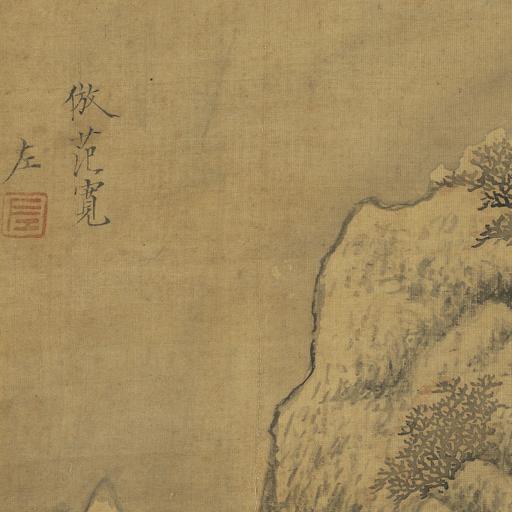 倣范寬
左